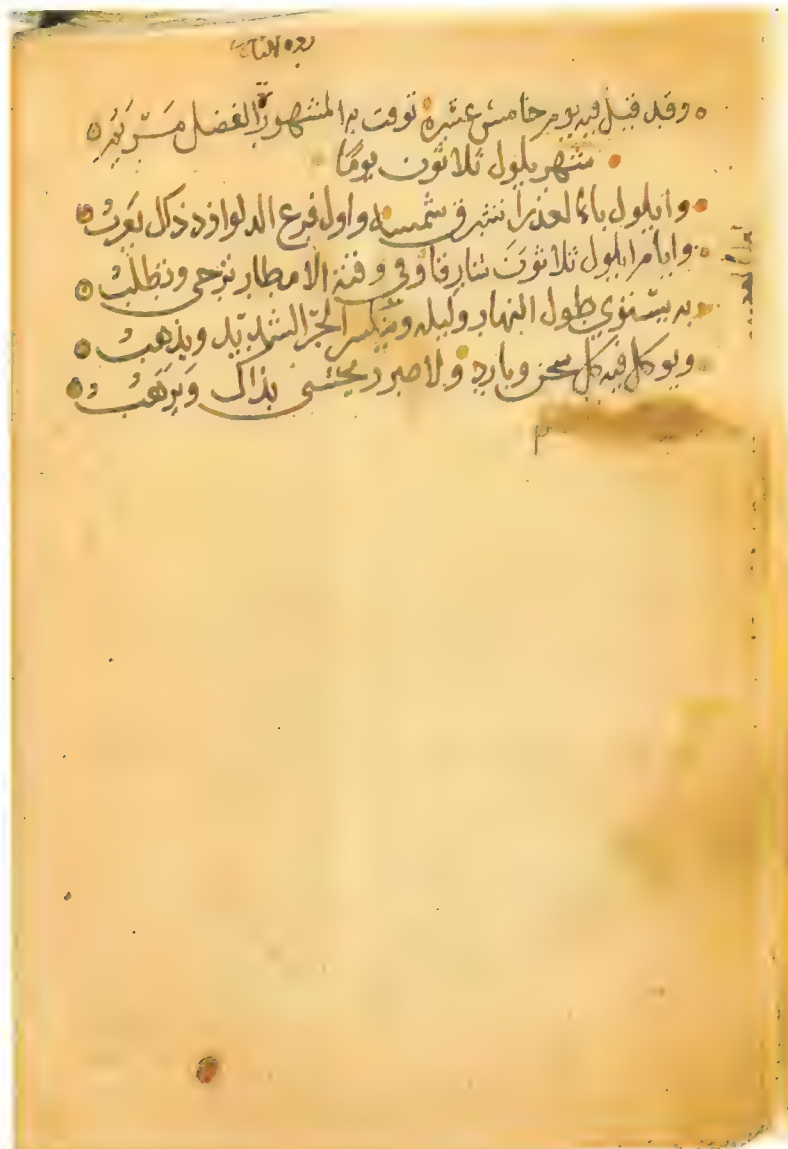 وقد قيل فيه يوم خامس عشره توفت به المشهورة الفضل مريم
شهر يلول ثلاثون يوما
وايلول باءلعذرا تشرق شمسه واول فرع الدلو اذ ذكل يغرب
وايام ايلول ثلاثون وفي وقته الامطار ترجى وتطلب
به يستوي طول النهار وليله وينكسر الحر الشديد ويذهب
ويوكل فيه كل سخن وبارد ولا ضرر يختشى بذاك ويرهب